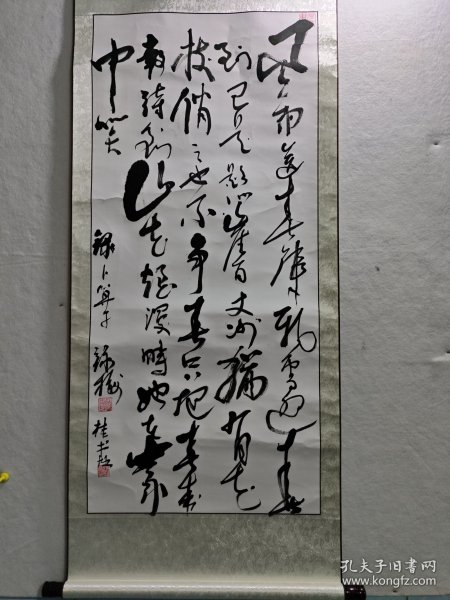 风雨送春归飛雪迎春
到已是悬崖百丈冰犹有花
枝俏々也不争春只把春来
報待到山花爛漫時她在丛
中笑
録卜算子 詠梅
孔夫子旧书网
www.kongfz.com